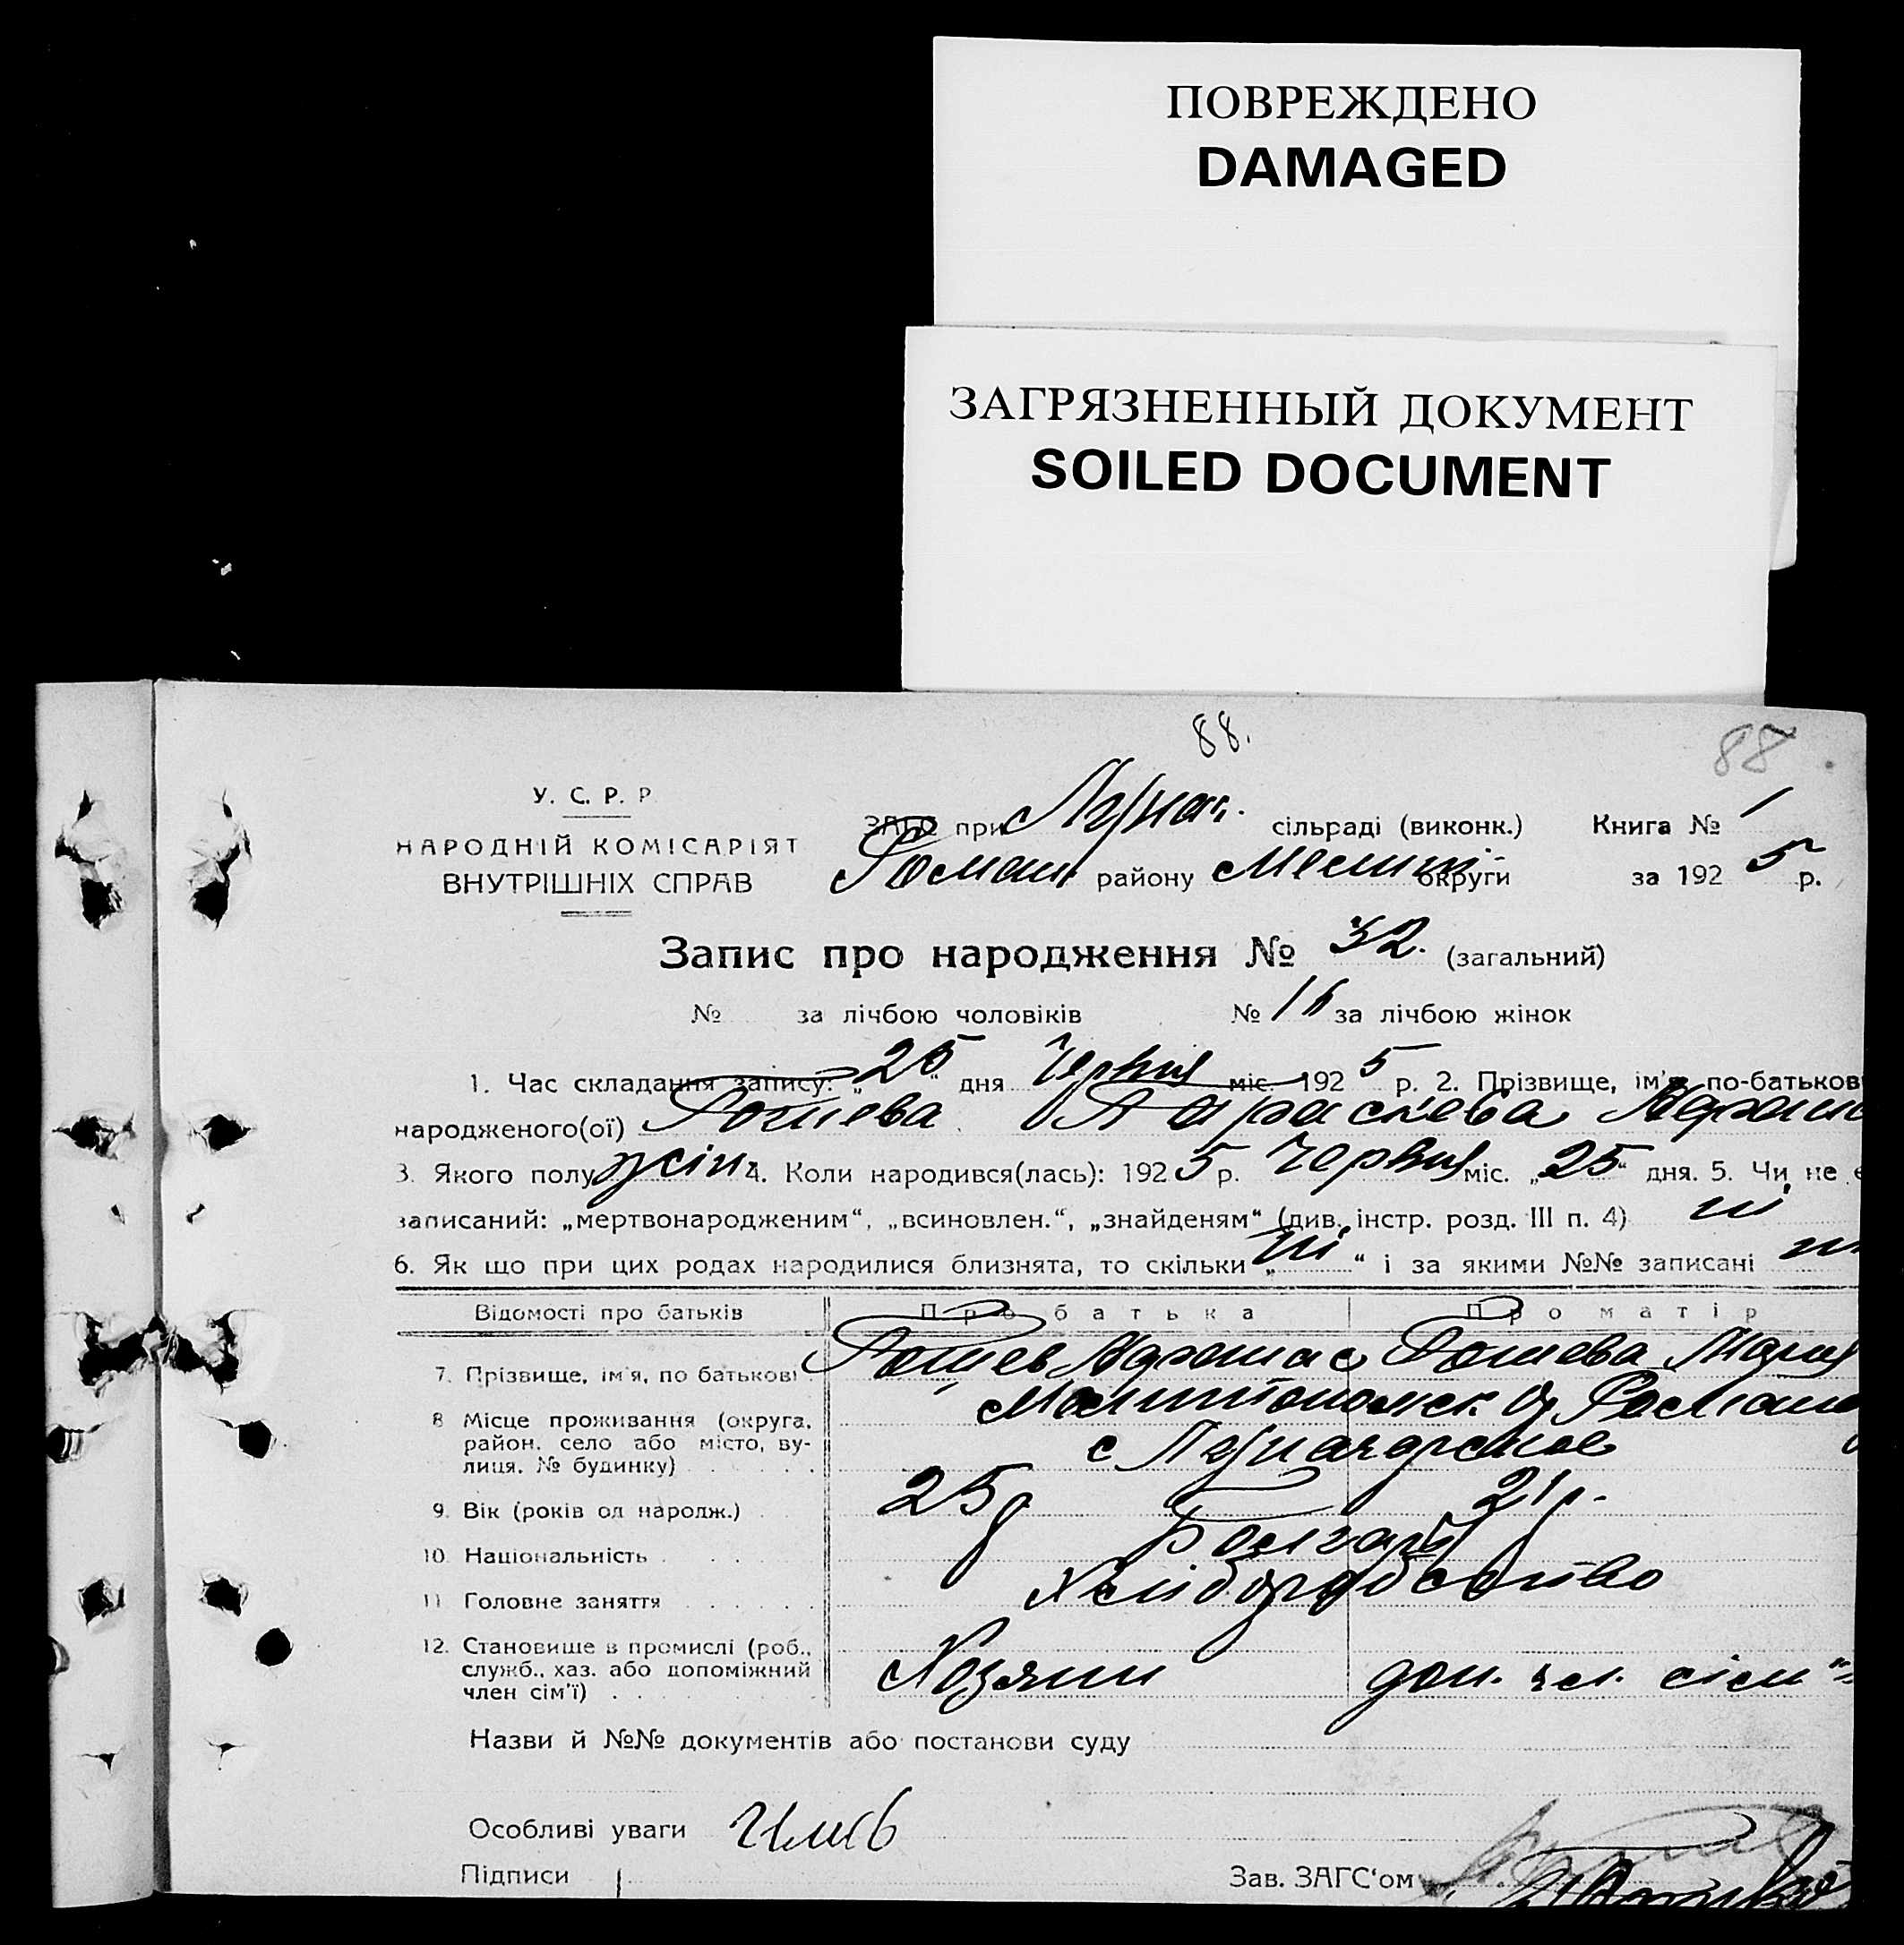 ПОВРЕЖДЕНО
DAMAGED
ЗАГРЯЗНЕННЫЙ ДОКУМЕНТ
SOILED DOCUMENT
88.
88.
У. С. Р. Р
НАРОДНІЙ КОМІСАРІЯТ
ВНУТРІШНІХ СПРАВ
ЗАГС при Луная. сільраді (виконк.) Книга № 1
Роман району Меліт округи за 192 5 р.
Запис про народження № 32. (загальний)
№ за лічбою чоловіків № 16 за лічбою жінок
1. Час складання запису: „25“ дня Червня міс. 1925 р. 2. Прізвище, ім'я, по-батькові
народженого(ої) Параскева
3. Якого полу жін. 4. Коли народився(лась): 1925 р. Червня міс. „25“ дня. 5. Чи не є
записаний: „мертвонародженим“, „всиновлен.“, „знайденям“ (див. інстр. розд. III п. 4) ні
6. Як що при цих родах народилися близнята, то скільки „ні“ і за якими №№ записані ні
Відомості про батьків Про батька Про матір
7. Прізвище, ім'я, по батькові Мария
8 Місце проживання (округа, район, село або місто, вулиця, № будинку)
с
9. Вік (років од народж.) 25 р 21 р.
10. Національність Болгары
11 Головне заняття Хліборобство
12. Становище в промислі (роб., служб., хаз. або допоміжний член сім'ї) Хозяин доп. чл. сієм
Назви й №№ документів або постанови суду
Особливі уваги
Підписи
Зав. ЗАГС'ом